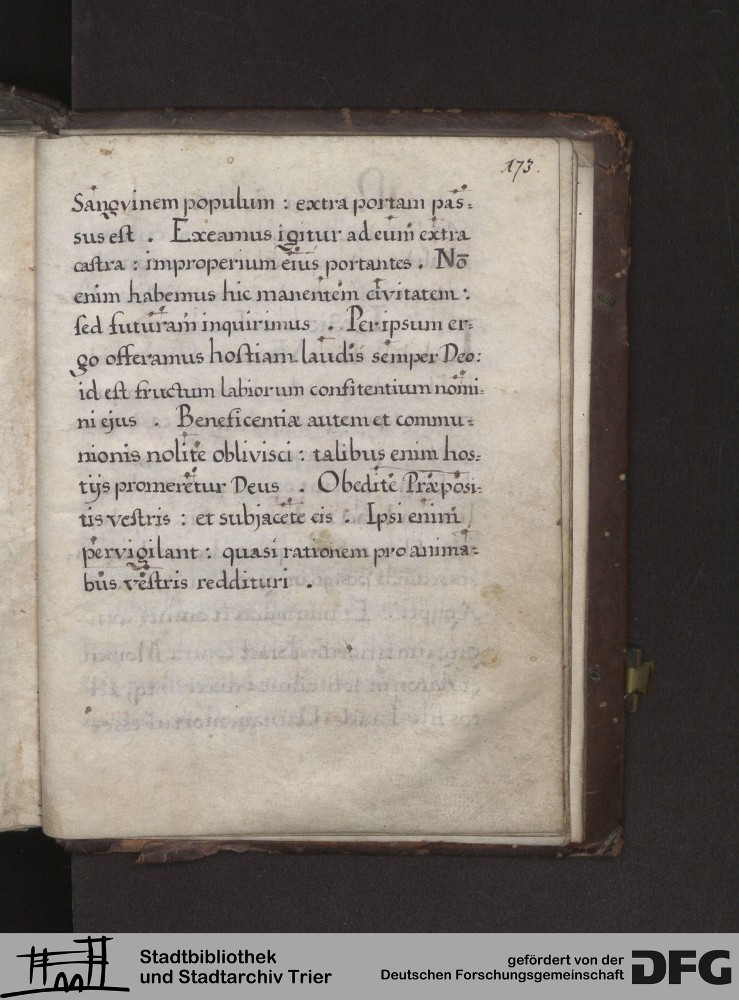 173.
Sangvinem populum : extra portam pas=
sus est . Exeamus igitur ad eum extra
castra : improperium eius portantes . Nō
enim habemus hic manentem civitatem :
sed futuram inquirimus . Per ipsum er-
go offeramus hostiam laudis semper Deo :
id est fructum labiorum confitentium nomi=
ni ejus . Beneficentiæ autem et commu=
nionis nolite oblivisci : talibus enim hos=
tijs promeretur Deus . Obedite Præposi=
tis vestris : et subjacete eis . Ipsi enim
pervigilant : quasi rationem pro anima=
bus vestris reddituri .
Stadtbibliothek
und Stadtarchiv Trier
gefördert von der
Deutschen Forschungsgemeinschaft
DFG